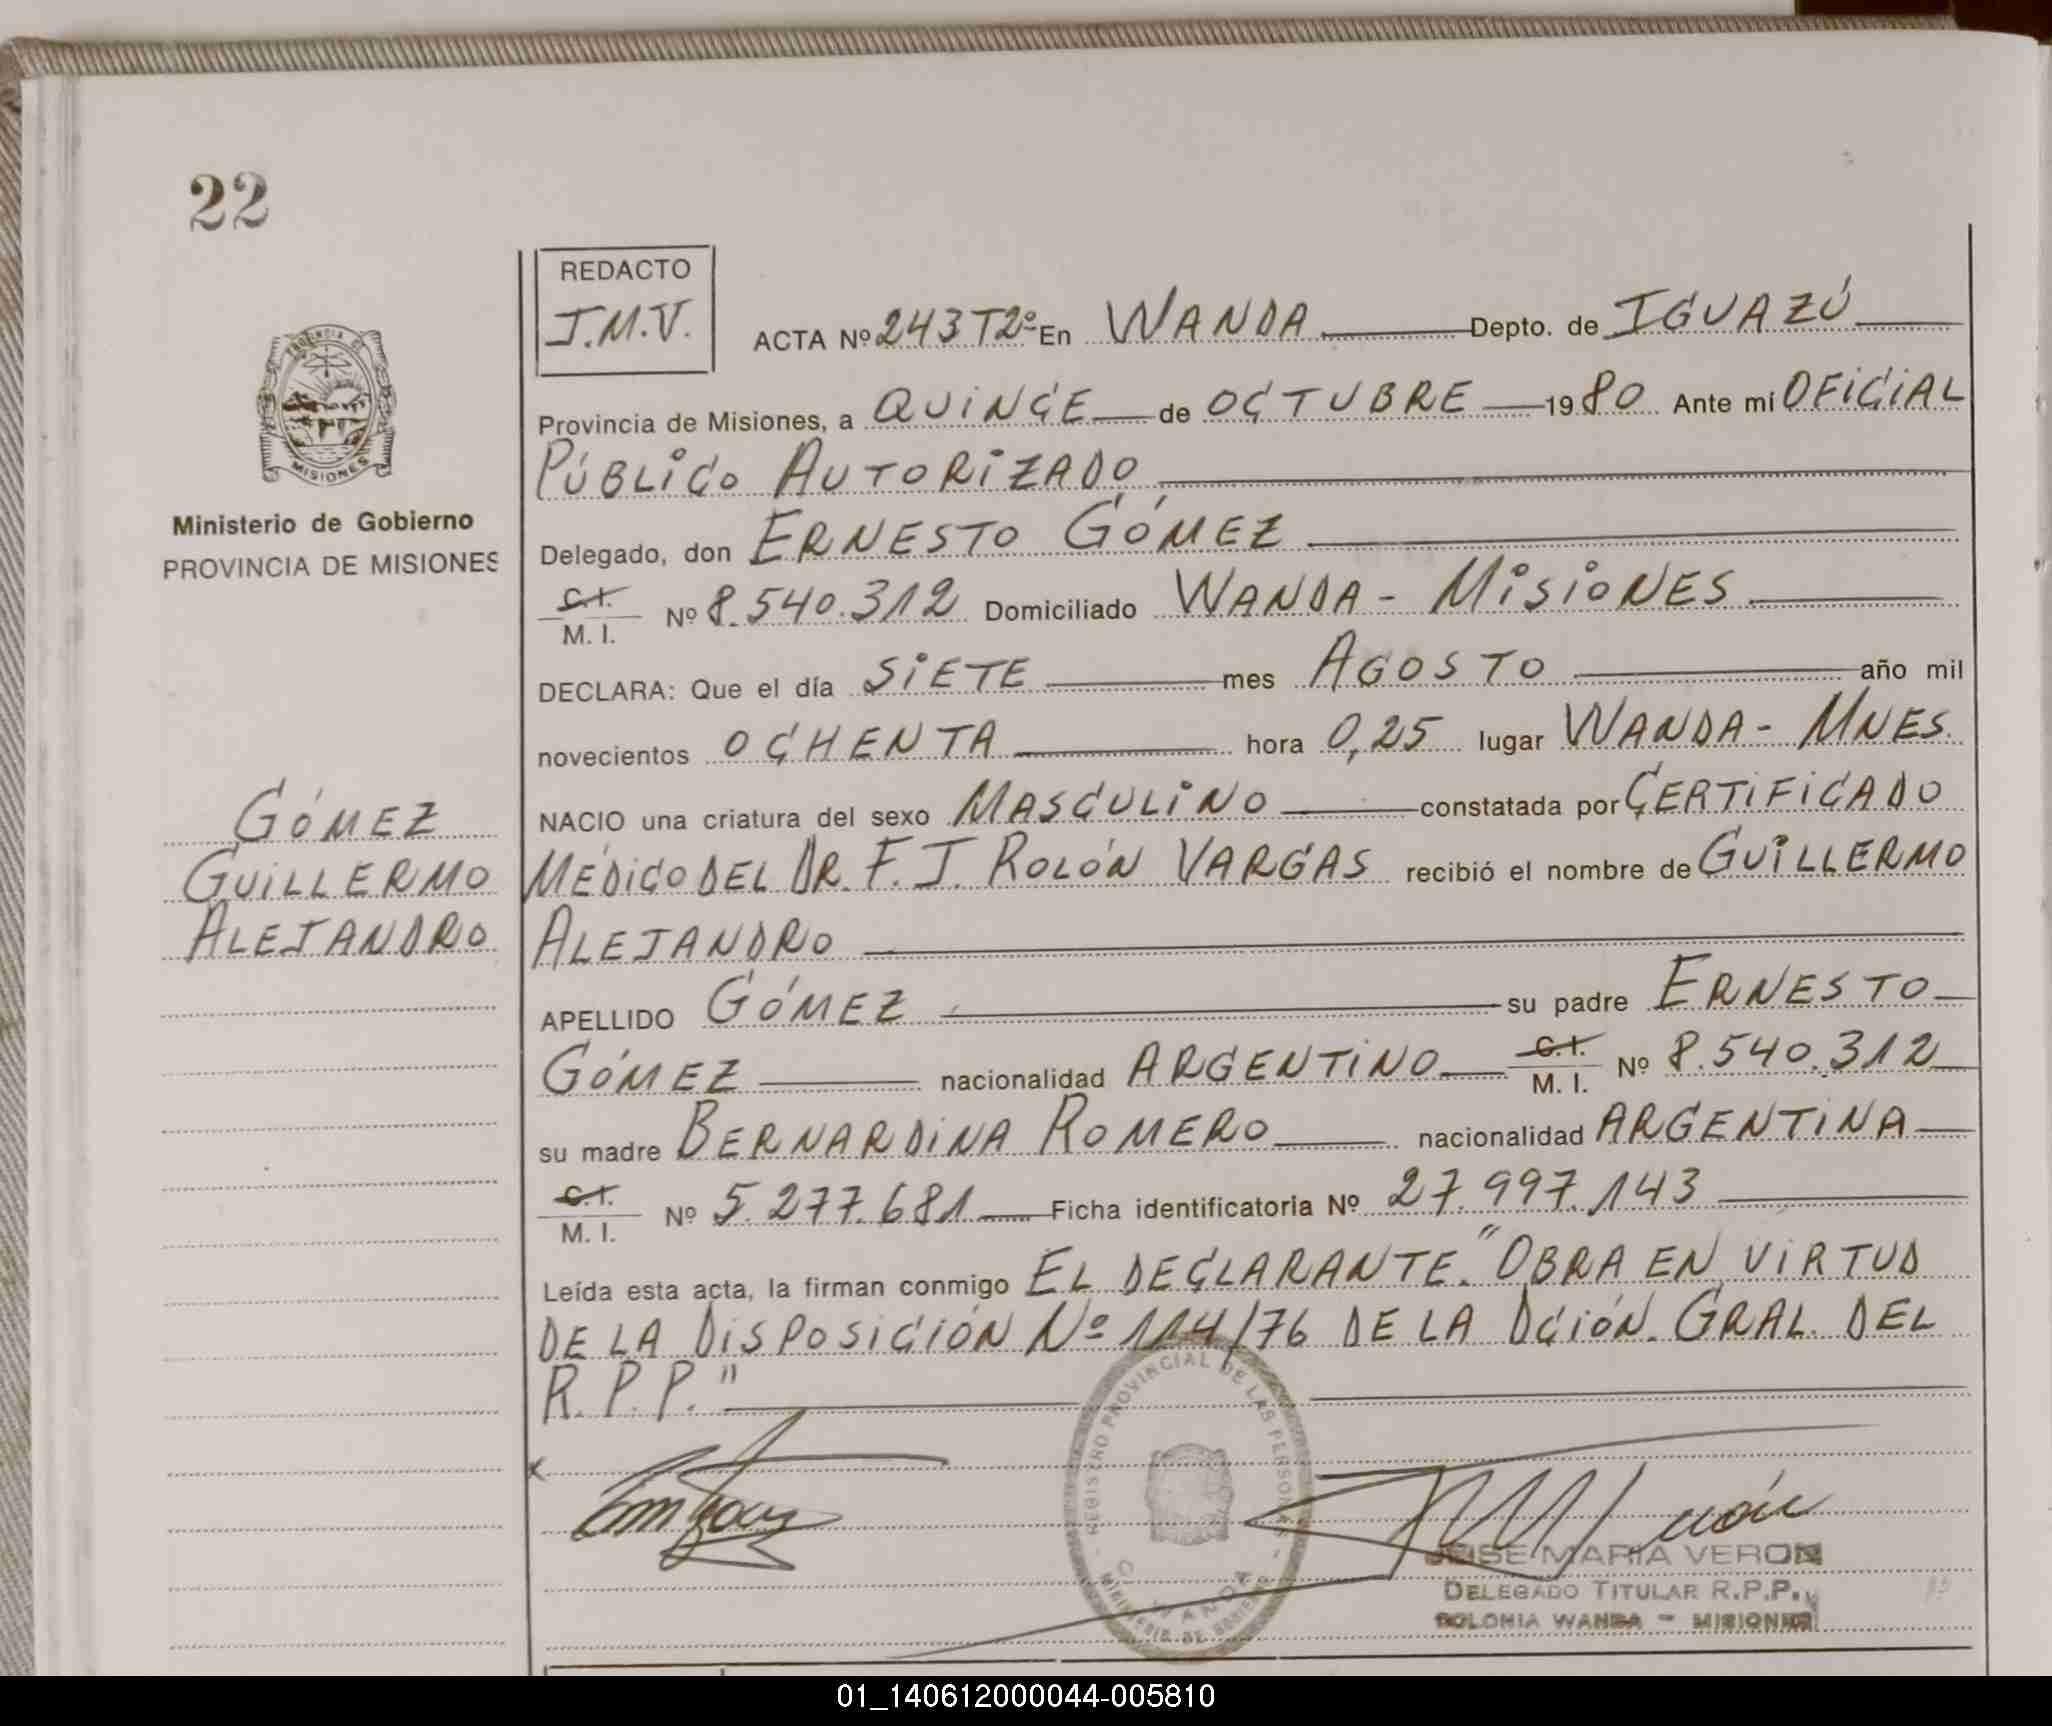 22
REDACTO
J.M.V.
ACTA Nº 243 T2º En WANDA Depto. de IGUAZÚ
Provincia de Misiones, a QUINCE de OCTUBRE 1980 Ante mi OFICIAL
PÚBLICO AUTORIZADO
Delegado, don ERNESTO GÓMEZ
C.I.
M. I. Nº 8.540.312 Domiciliado WANDA - MISIONES
DECLARA: Que el día SIETE mes AGOSTO año mil
novecientos OCHENTA hora 0,25 lugar WANDA - MNES.
NACIO una criatura del sexo MASCULINO constatada por CERTIFICADO
MÉDICO DEL DR. F. J. ROLÓN VARGAS recibió el nombre de GUILLERMO
ALEJANDRO
APELLIDO GÓMEZ su padre ERNESTO
GÓMEZ nacionalidad ARGENTINO C.I. M. I. Nº 8.540.312
su madre BERNARDINA ROMERO nacionalidad ARGENTINA
C.I.
M. I. Nº 5.277.681 Ficha identificatoria Nº 27.997.143
Leída esta acta, la firman conmigo EL DECLARANTE. "OBRA EN VIRTUD
DE LA DISPOSICIÓN Nº 114/76 DE LA DCIÓN. GRAL. DEL
R.P.P."
PROVINCIA DE
MISIONES
Ministerio de Gobierno
PROVINCIA DE MISIONES
GÓMEZ
GUILLERMO
ALEJANDRO
REGISTRO PROVINCIAL DE LAS PERSONAS
WANDA
MINISTERIO DE GOBIERNO
JOSE MARIA VERON
DELEGADO TITULAR R.P.P.
COLONIA WANDA - MISIONES
01_140612000044-005810